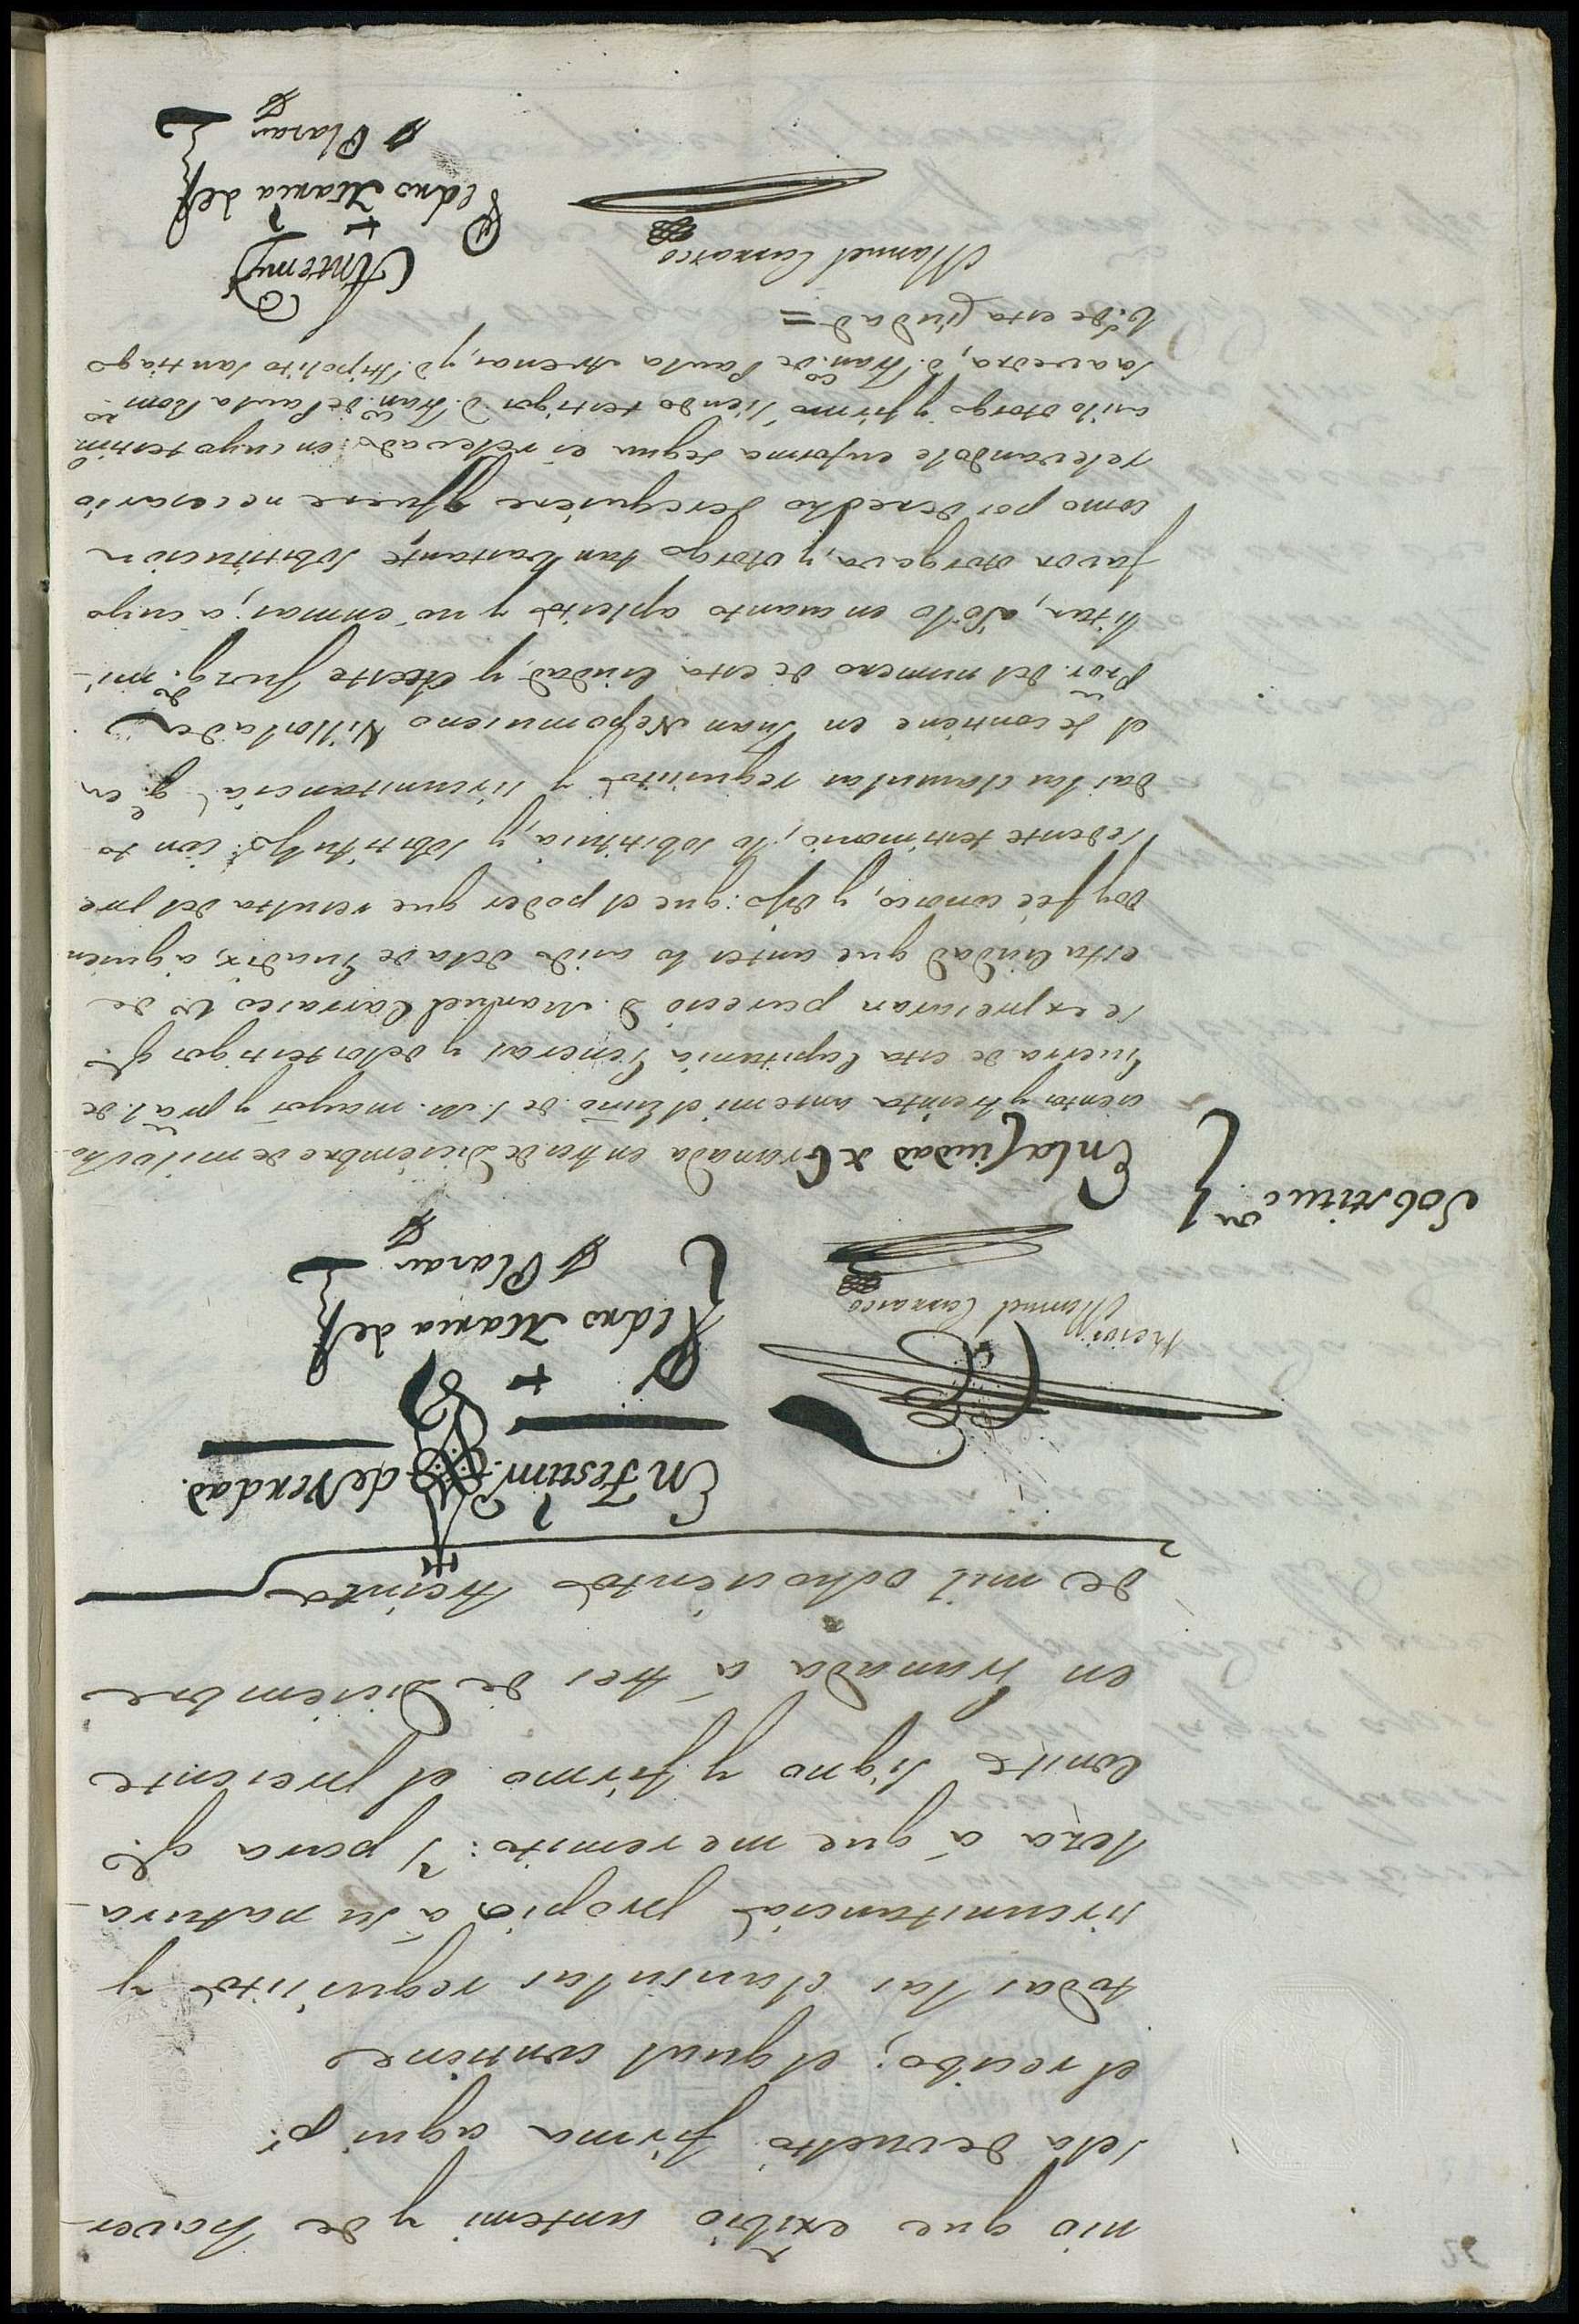 nio que exibio antemi y de haver-
sela devuelto firma aqui p.r
el recibo; el qual contiene
todas las clausulas requisitos y
circunstancias propias á su natura-
leza á que me remito: Y para q.e
conste signo y firmo el presente
en Granada á tres de Diciembre
de mil ochocientos treinta
En Testim.o de Verdad.
Pedro Maria de
Olarar
recivi
Manuel Carrasco
Sobstituc.on
En la Ciudad de Granada en tres de Diciembre de mil ocho-
cientos y treinta antemi el Esno de S. M. mayor y pral. de
Guerra de esta Capitania General y delos testigos q.e
se expresaran parecio D. Manuel Carrasco V.o de
esta Ciudad que antes lo asido dela de Guadix, a quien
doy fée conosco, y dijo: que el poder que resulta del pre
cedente testimonio, lo sobstituia, y sobstituyó con to
das las clausulas requisitos y circunstancias q.e en
el se contiene en Juan Nepomuceno Villostada
Pror. del numero de esta Ciudad y de este Juzg.do mi-
litar, solo en cuanto apleitos y no enmas; a cuyo
favor otorgava, y otorgo tan bastante sobstitucion
como por derecho se requiere y fuere necesario
relevandole enforma segun es relevado: en cuyo testim.o
asilo otorgo y firmo siendo testigos D. Fran.co de Paula Rom.o
Saavedra, D. Fran.co de Paula Arenas, y D. Hipolito Santiago
V.s de esta Ciudad =
Manuel Carrasco
Antemy
Pedro Maria de
Olarar